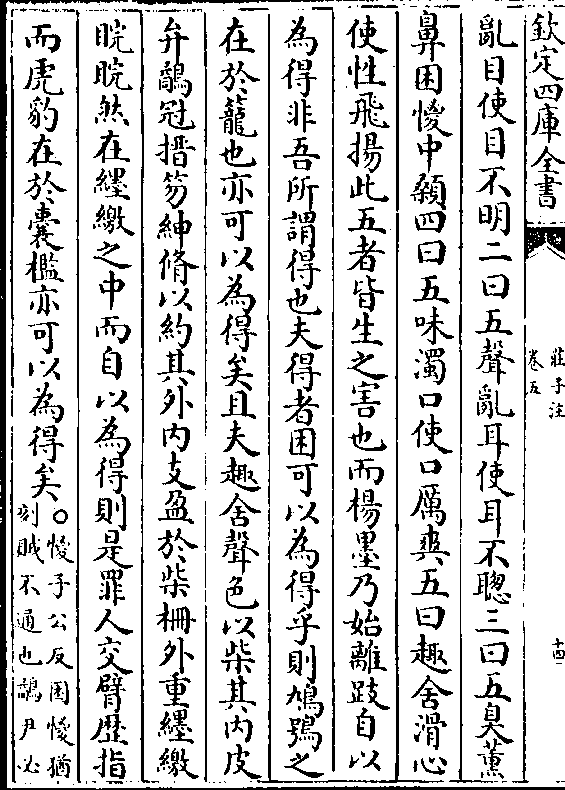 欽定四庫全書
莊子注
卷五
十四
亂目使目不明二曰五聲亂耳使耳不聰三曰五臭薰
鼻困慘中顙四曰五味濁口使口厲爽五曰趣舍滑心
使性飛揚此五者皆生之害也而楊墨乃始離跂自以
為得非吾所謂得也夫得者困可以為得乎則鳩鴞之
在於籠也亦可以為得矣且夫趣舍聲色以柴其內皮
弁鷸冠搢笏紳脩以約其外內支盈於柴柵外重纆繳
睆睆然在纆繳之中而自以為得則是罪人交臂歷指
而虎豹在於囊檻亦可以為得矣○惾子公反困惾猶
刻賊不通也鷸尹必